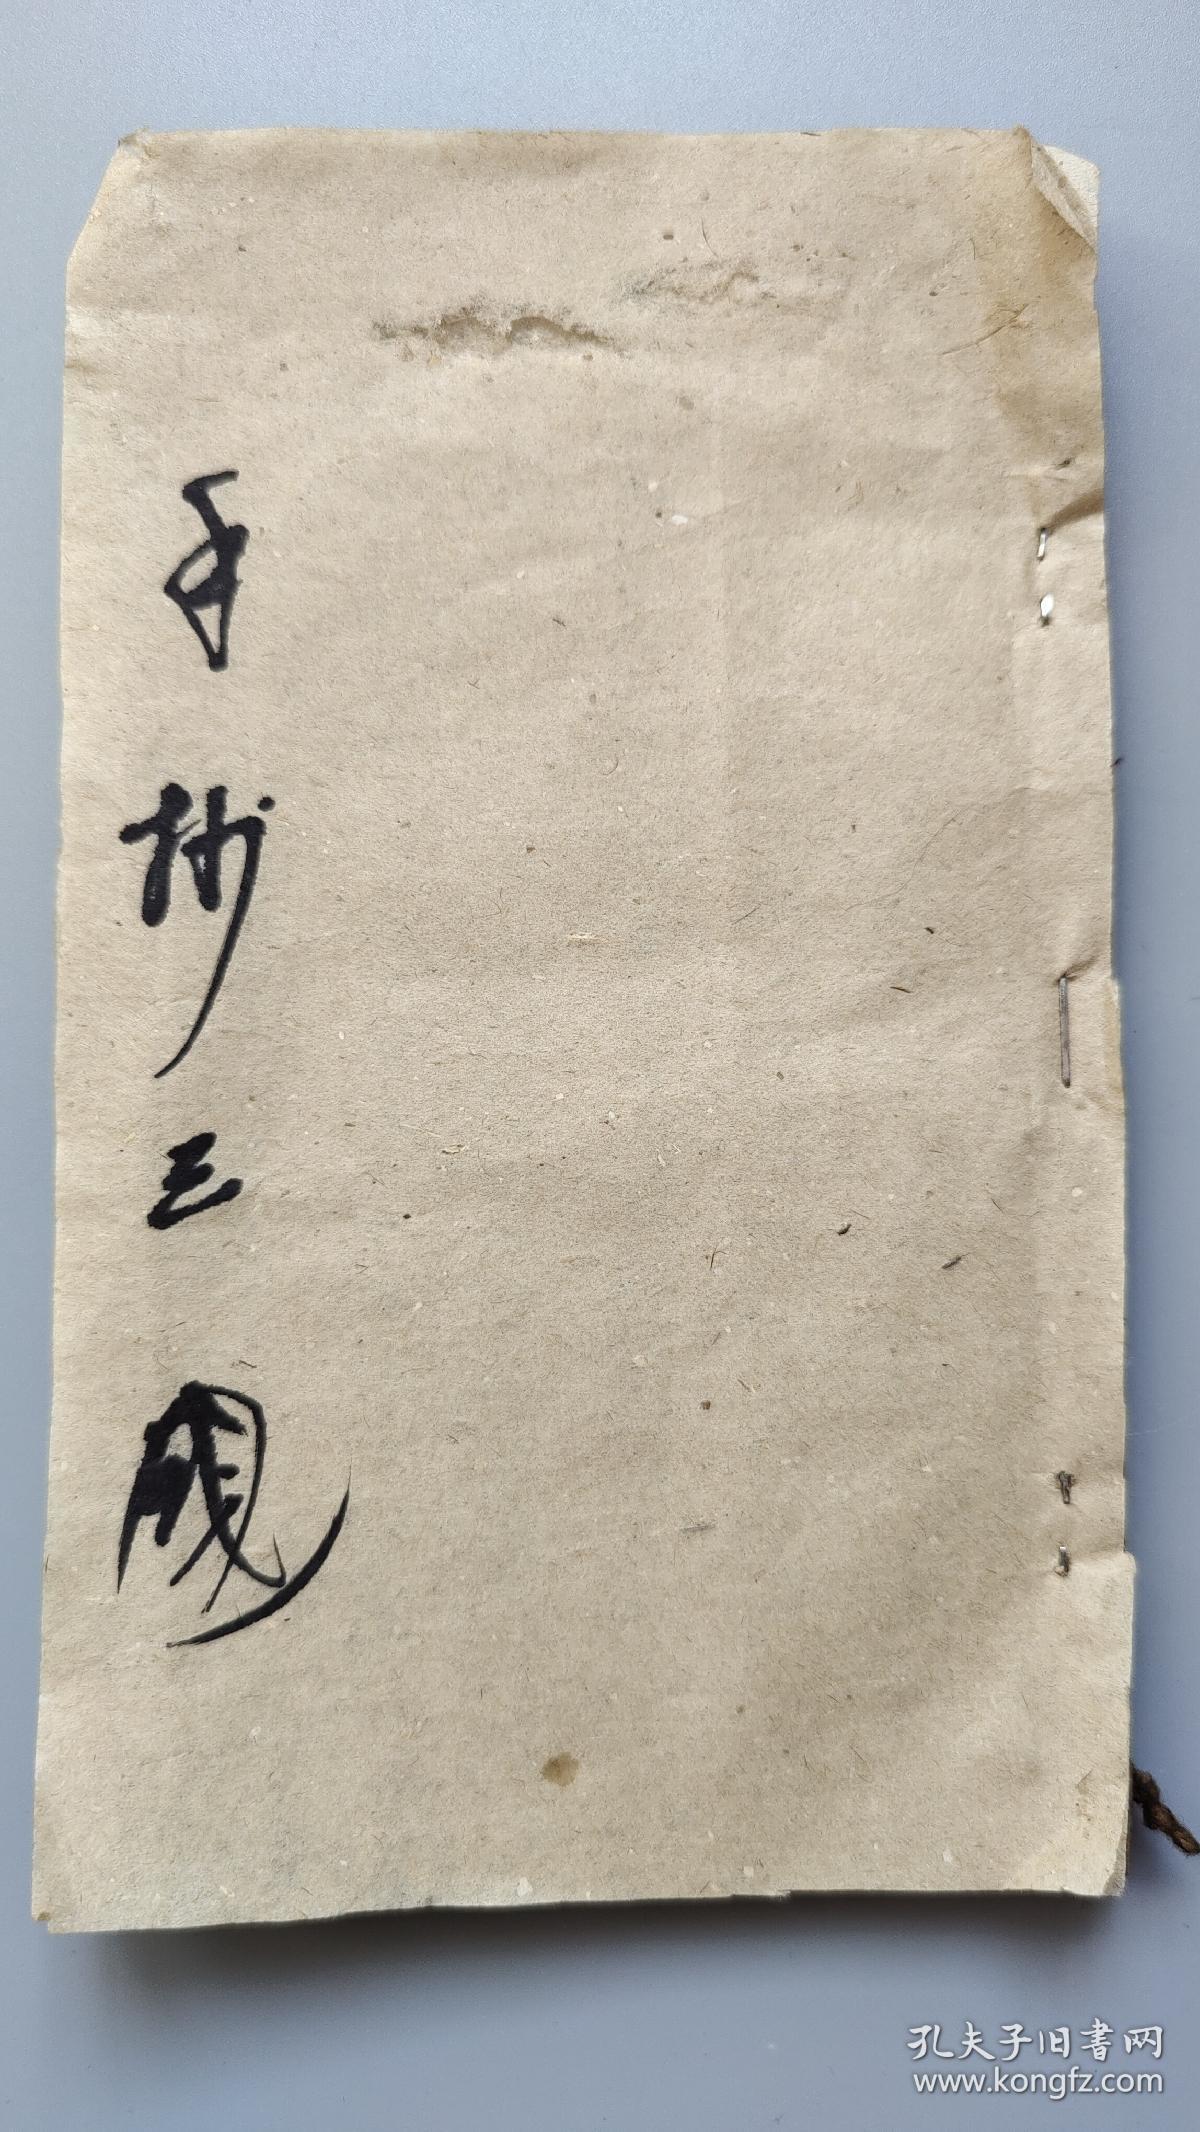 手抄三國
孔夫子旧書网
www.kongfz.com